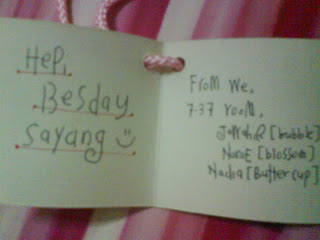 HePi
Besday
Sayang
From we,
737 room,
[bubble]
[blossom]
Nadia [Buttercup]